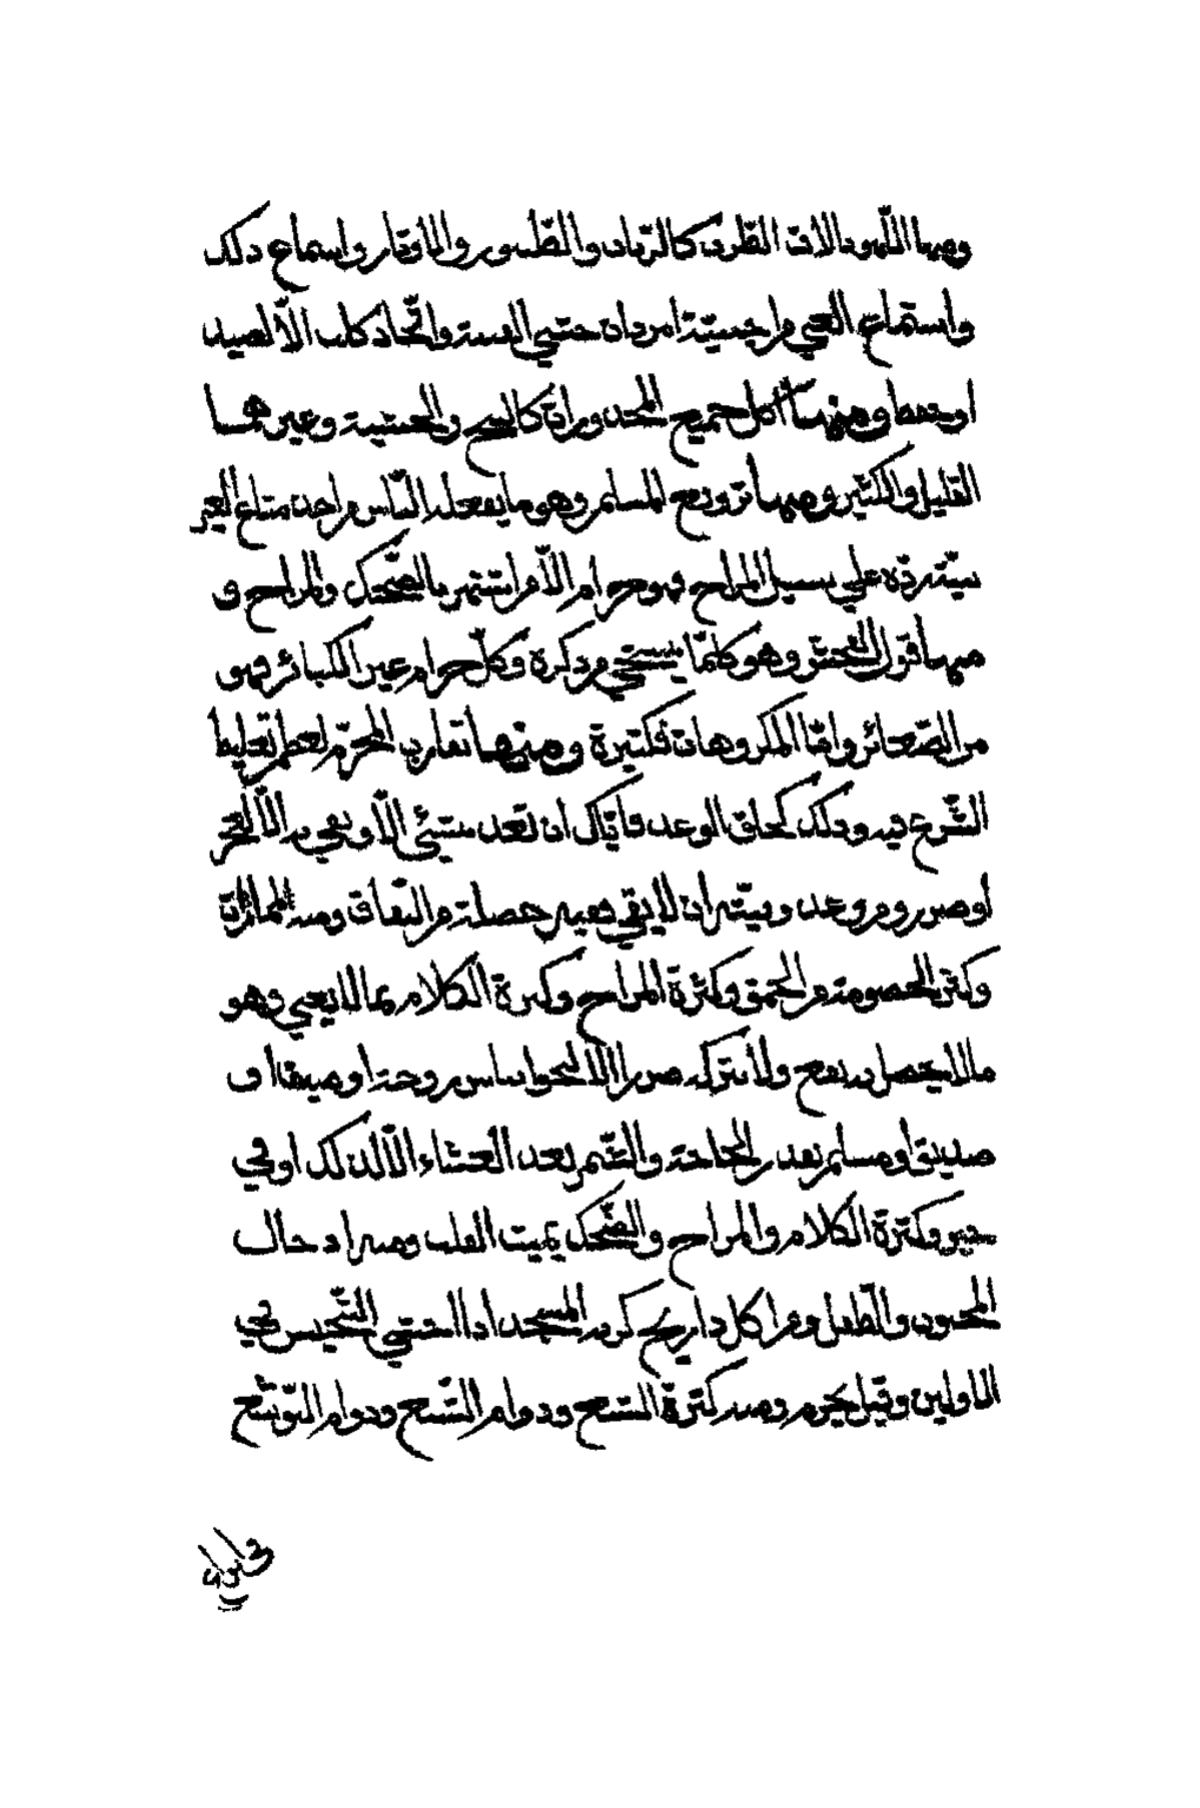 ومنها اللهو بالات الطّرب كالرّباب والطّنبور والأوتار واسماع ذلك
واستماع الغني من اجنبيّة امردان خشي الفتنة واتّخاذ كلب الّا لصيد
اوحفظ ومنها أكل جميع المخدورات كالبنج والحشيشة وغيرهما
القليل والكثير ومنها ترويع المسلم وهو ما يفعله النّاس من اخذ متاع الغير
بنيّة ردّه علي سبيل المزاح فهو حرام الّا من اشتهر بالضّحك والمزاح و
منها قول الفحش وهو كلمّا يستحي من ذكره وكلّ حرام غير الكبائر فهو
من الصّغائر وامّا المكروهات فكثيرة ومنها تقارب المحرّم لعظم تغليظ
الشّرع فيه وذلك كخلف الوعد فايّاك ان تعد بشئ الّا وتفي به الّا لعجز
او ضرورة من وعد ونيّته ان لا يفي ففيه خصلة من النّفاق ومنه المماراة
وكثرة الخصومة من الحمق وكثرة المزاح وكثرة الكلام بما لا يعني وهو
ما لا يحصل به نفع ولا بتركه ضرر الّا لنحو ايناس زوجة او ضيف او
صديق او مسلم بقدر الحاجة والسّمر بعد العشاء الّا لذلك او في
خير وكثرة الكلام والمزاح والضّحك يميت القلب ومنه ادخال
المجنون والطّفل ومن اكل ذا ريح كره المسجد اذا انتفي التّنجيس في
الاولين وقيل يحرم ومنه كثرة الشبع ودوام الشّبع ودوام التّوسّع